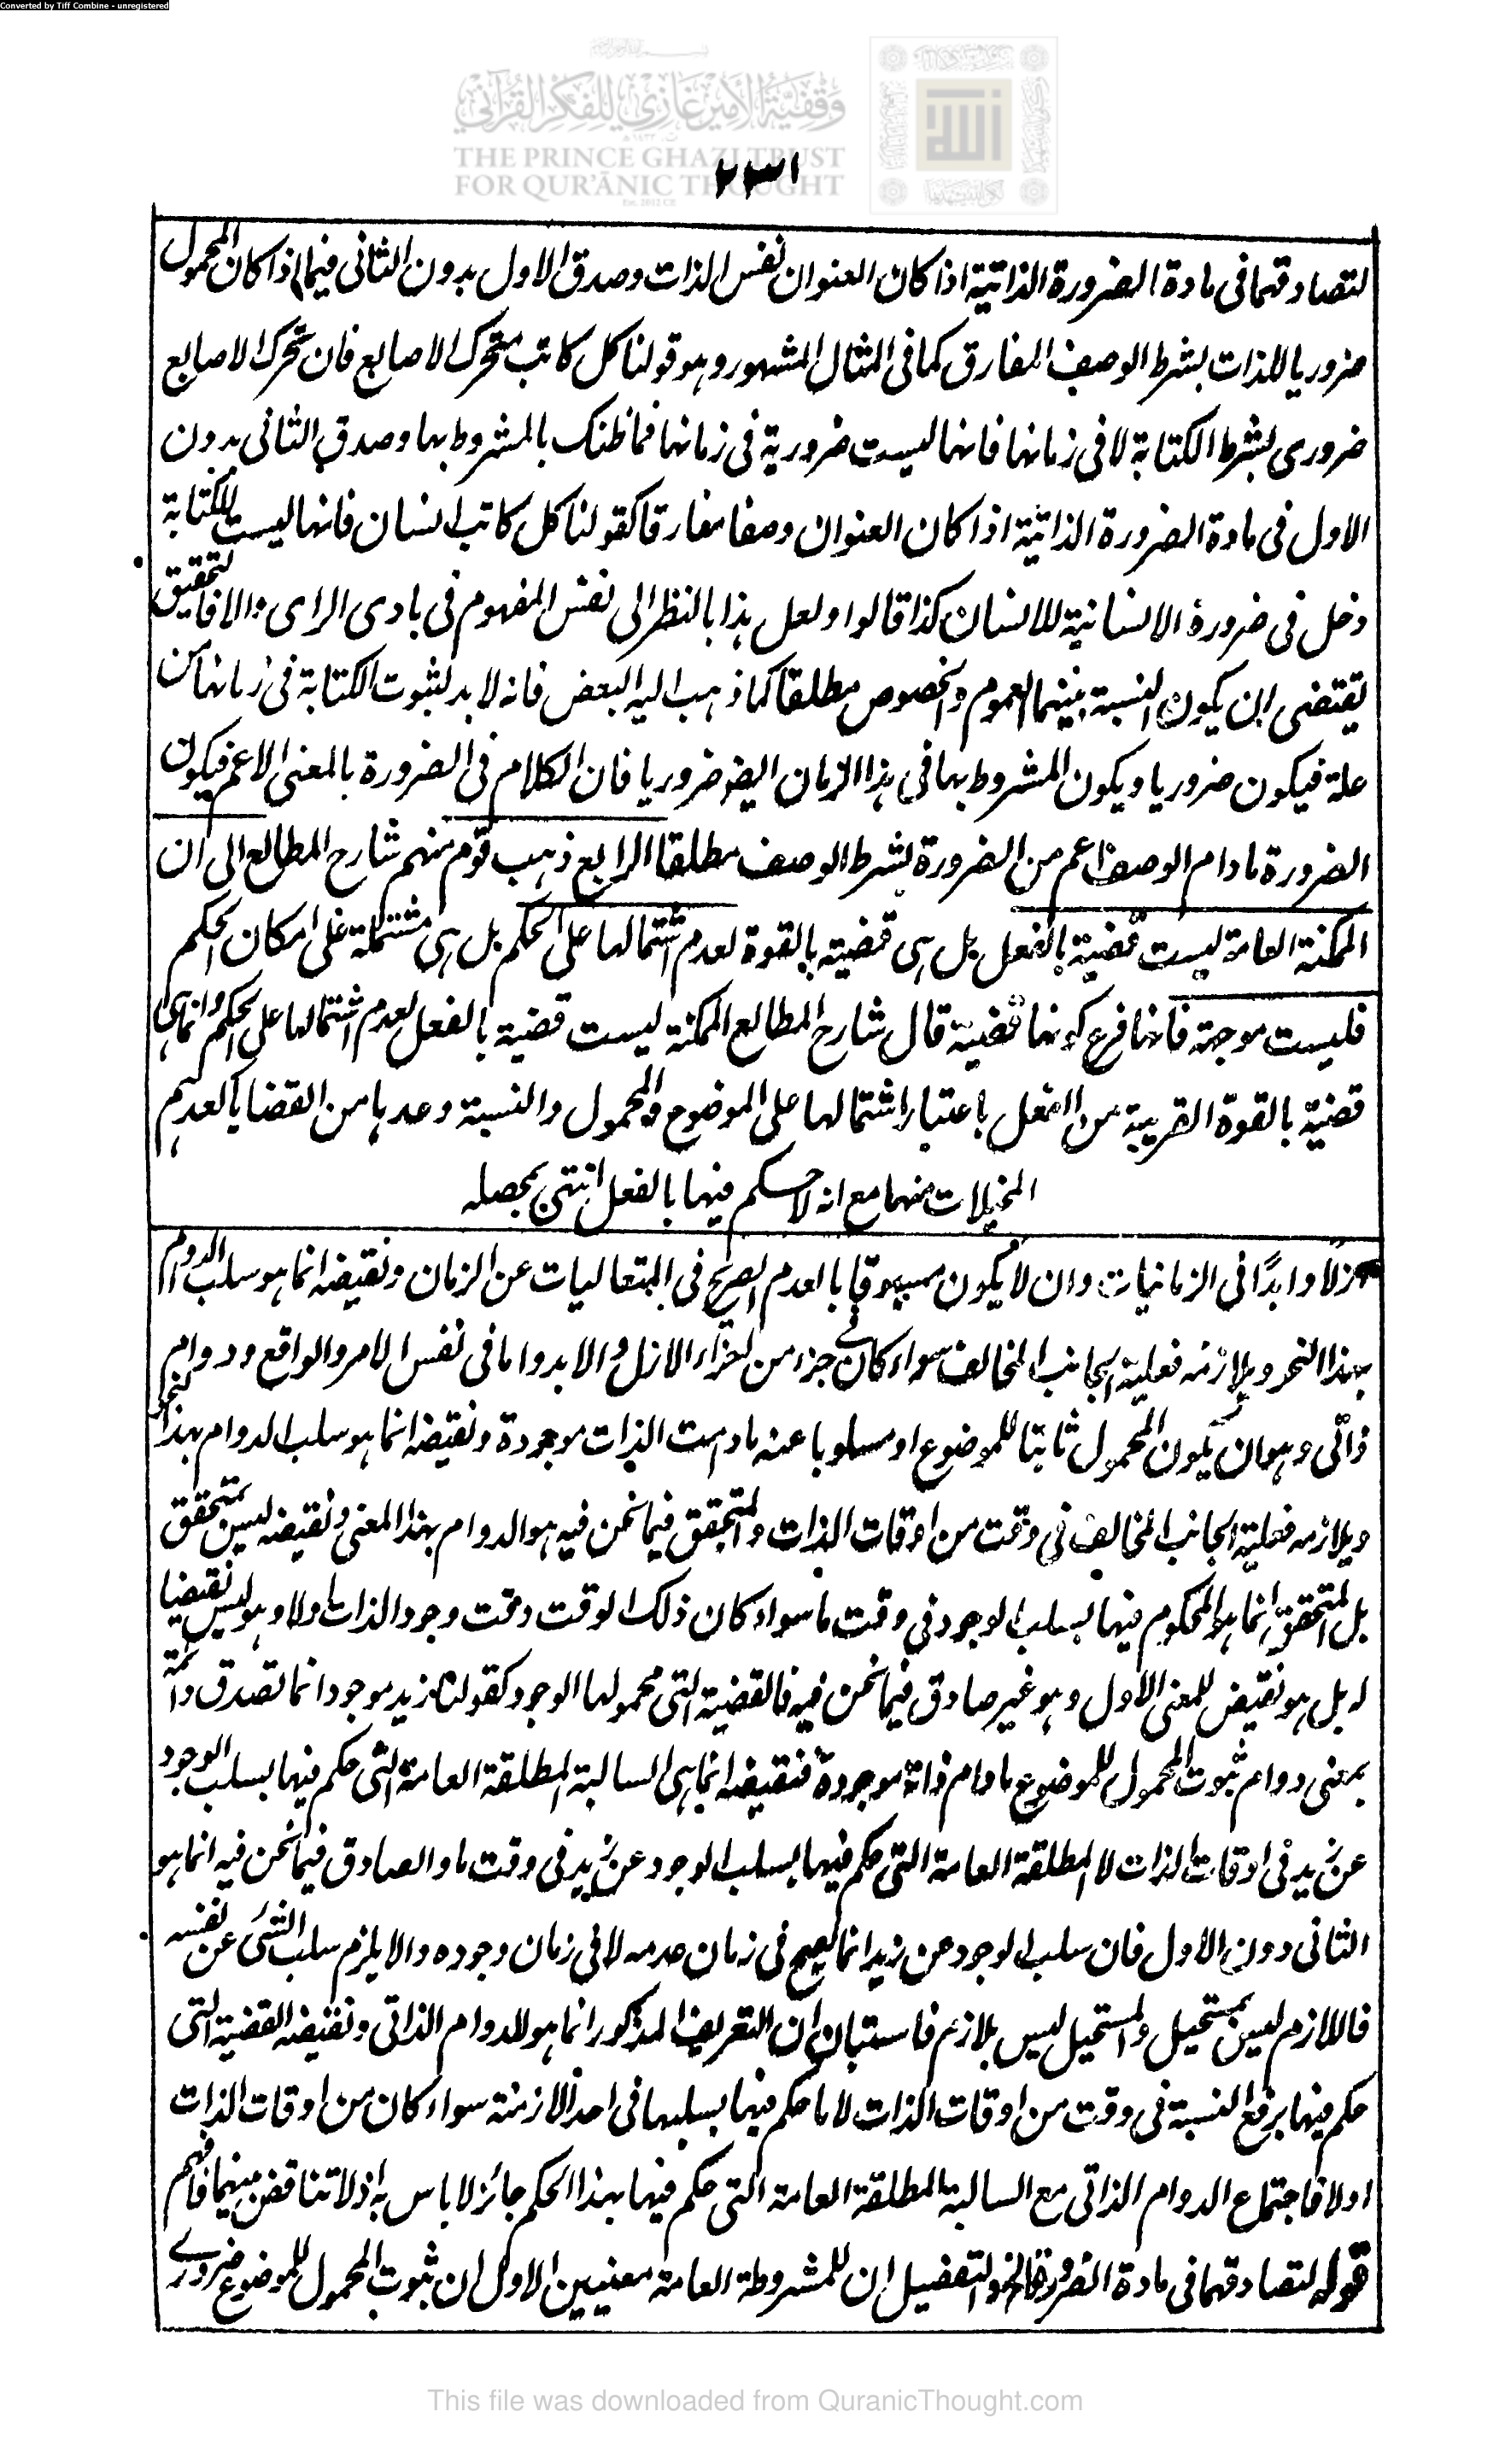 Converted by Tiff Combine - unregistered
وقفية الأمير غازي للفكر القرآني
THE PRINCE GHAZI TRUST
FOR QUR'ĀNIC THOUGHT
Est. 2012 CE
لتصادقهما فى مادة الضرورة الذاتية اذا كان العنوان نفس الذات وصدق الاول بدون الثانى فيما اذا كان المحمول
ضروريا للذات بشرط الوصف المفارق كما فى المثال المشهور وهو قولنا كل كاتب متحرك الاصابع فان تحرك الاصابع
ضرورى بشرط الكتابة لا فى زمانها فانها ليست ضرورية فى زمانها فما ظنك بالمشروط بها وصدق الثانى بدون
الاول فى مادة الضرورة الذاتية اذا كان العنوان وصفا مفارقا كقولنا كل كاتب انسان فانها ليست للكتابة
دخل فى ضرورة الانسانية للانسان كذا قالوا ولعل هذا بالنظر الى نفس المفهوم فى بادى الراى والا فالتحقيق
يقتضى ان يكون النسبة بينهما العموم والخصوص مطلقا كما ذهب اليه البعض فانه لا بد لثبوت الكتابة فى زمانها من
علة فيكون ضروريا ويكون المشروط بها فى هذا الزمان ايضو ضروريا فان الكلام فى الضرورة بالمعنى الاعم فيكون
الضرورة مادام الوصف اعم من الضرورة بشرط الوصف مطلقا الرابع ذهب قوم منهم شارح المطالع الى ان
الممكنة العامة ليست قضية بالفعل بل هى قضية بالقوة لعدم اشتمالها على الحكم بل هى مشتملة على امكان الحكم
فليست موجهة فانها فرع كونها قضية قال شارح المطالع الممكنة ليست قضية بالفعل لعدم اشتمالها على الحكم وانما هى
قضية بالقوة القريبة من الفعل باعتبار اشتمالها على الموضوع والمحمول والنسبة وعدها من القضايا كعدهم
المخيلات منها مع انه لا حكم فيها بالفعل انتهى بمحصله
ازلًا وابدًا فى الزمانيات وان لا يكون مسبوقا بالعدم الصريح فى المتعاليات عن الزمان ونقيضه انما هو سلب الدوام
بهذا النحو ويلازمه فعلية الجانب المخالف سواء كان فى جزء من اجزاء الازل والابد واما فى نفس الامر والواقع ودوام
ذاتى وهو ان يكون المحمول ثابتا للموضوع او مسلوبا عنه ما دامت الذات موجودة ونقيضه انما هو سلب الدوام بهذا النحو
ويلازمه فعلية الجانب المخالف فى وقت من اوقات الذات والمتحقق فيما نحن فيه هو الدوام بهذا المعنى ونقيضه ليس بمتحقق
بل المتحقق انما هو المحكوم فيها بسلب الوجود فى وقت ما سواء كان ذلك الوقت وقت وجود الذات او لا وهو ليس نقيضا
له بل هو نقيض للمعنى الاول وهو غير صادق فيما نحن فيه فالقضية التى محمولها الوجود كقولنا زيد موجود انما تصدق دائمة
بمعنى دوام ثبوت المحمول للموضوع مادام ذاته موجودة فنقيضه انما هى السالبة المطلقة العامة التى حكم فيها بسلب الوجود
عن زيد فى اوقات الذات لا المطلقة العامة التى حكم فيها بسلب الوجود عن زيد فى وقت ما والصادق فيما نحن فيه انما هو
الثانى دون الاول فان سلب الوجود عن زيد انما يصح فى زمان عدمه لا فى زمان وجوده والا يلزم سلب الشئ عن نفسه
فاللازم ليس بمستحيل والمستحيل ليس بلازم فاستبان ان التعريف المذكور انما هو للدوام الذاتى ونقيضه القضية التى
حكم فيها برفع النسبة فى وقت من اوقات الذات لا ما حكم فيها بسلبها فى احد الازمنة سواء كان من اوقات الذات
اولا فاجتماع الدوام الذاتى مع السالبة المطلقة العامة التى حكم فيها بهذا الحكم جائز لا باس به اذ لا تناقض بينهما فافهم
قوله لتصادقهما فى مادة الضرورة الخ والتفصيل ان للمشروطة العامة معنيين الاول ان ثبوت المحمول للموضوع ضرورے
This file was downloaded from QuranicThought.com